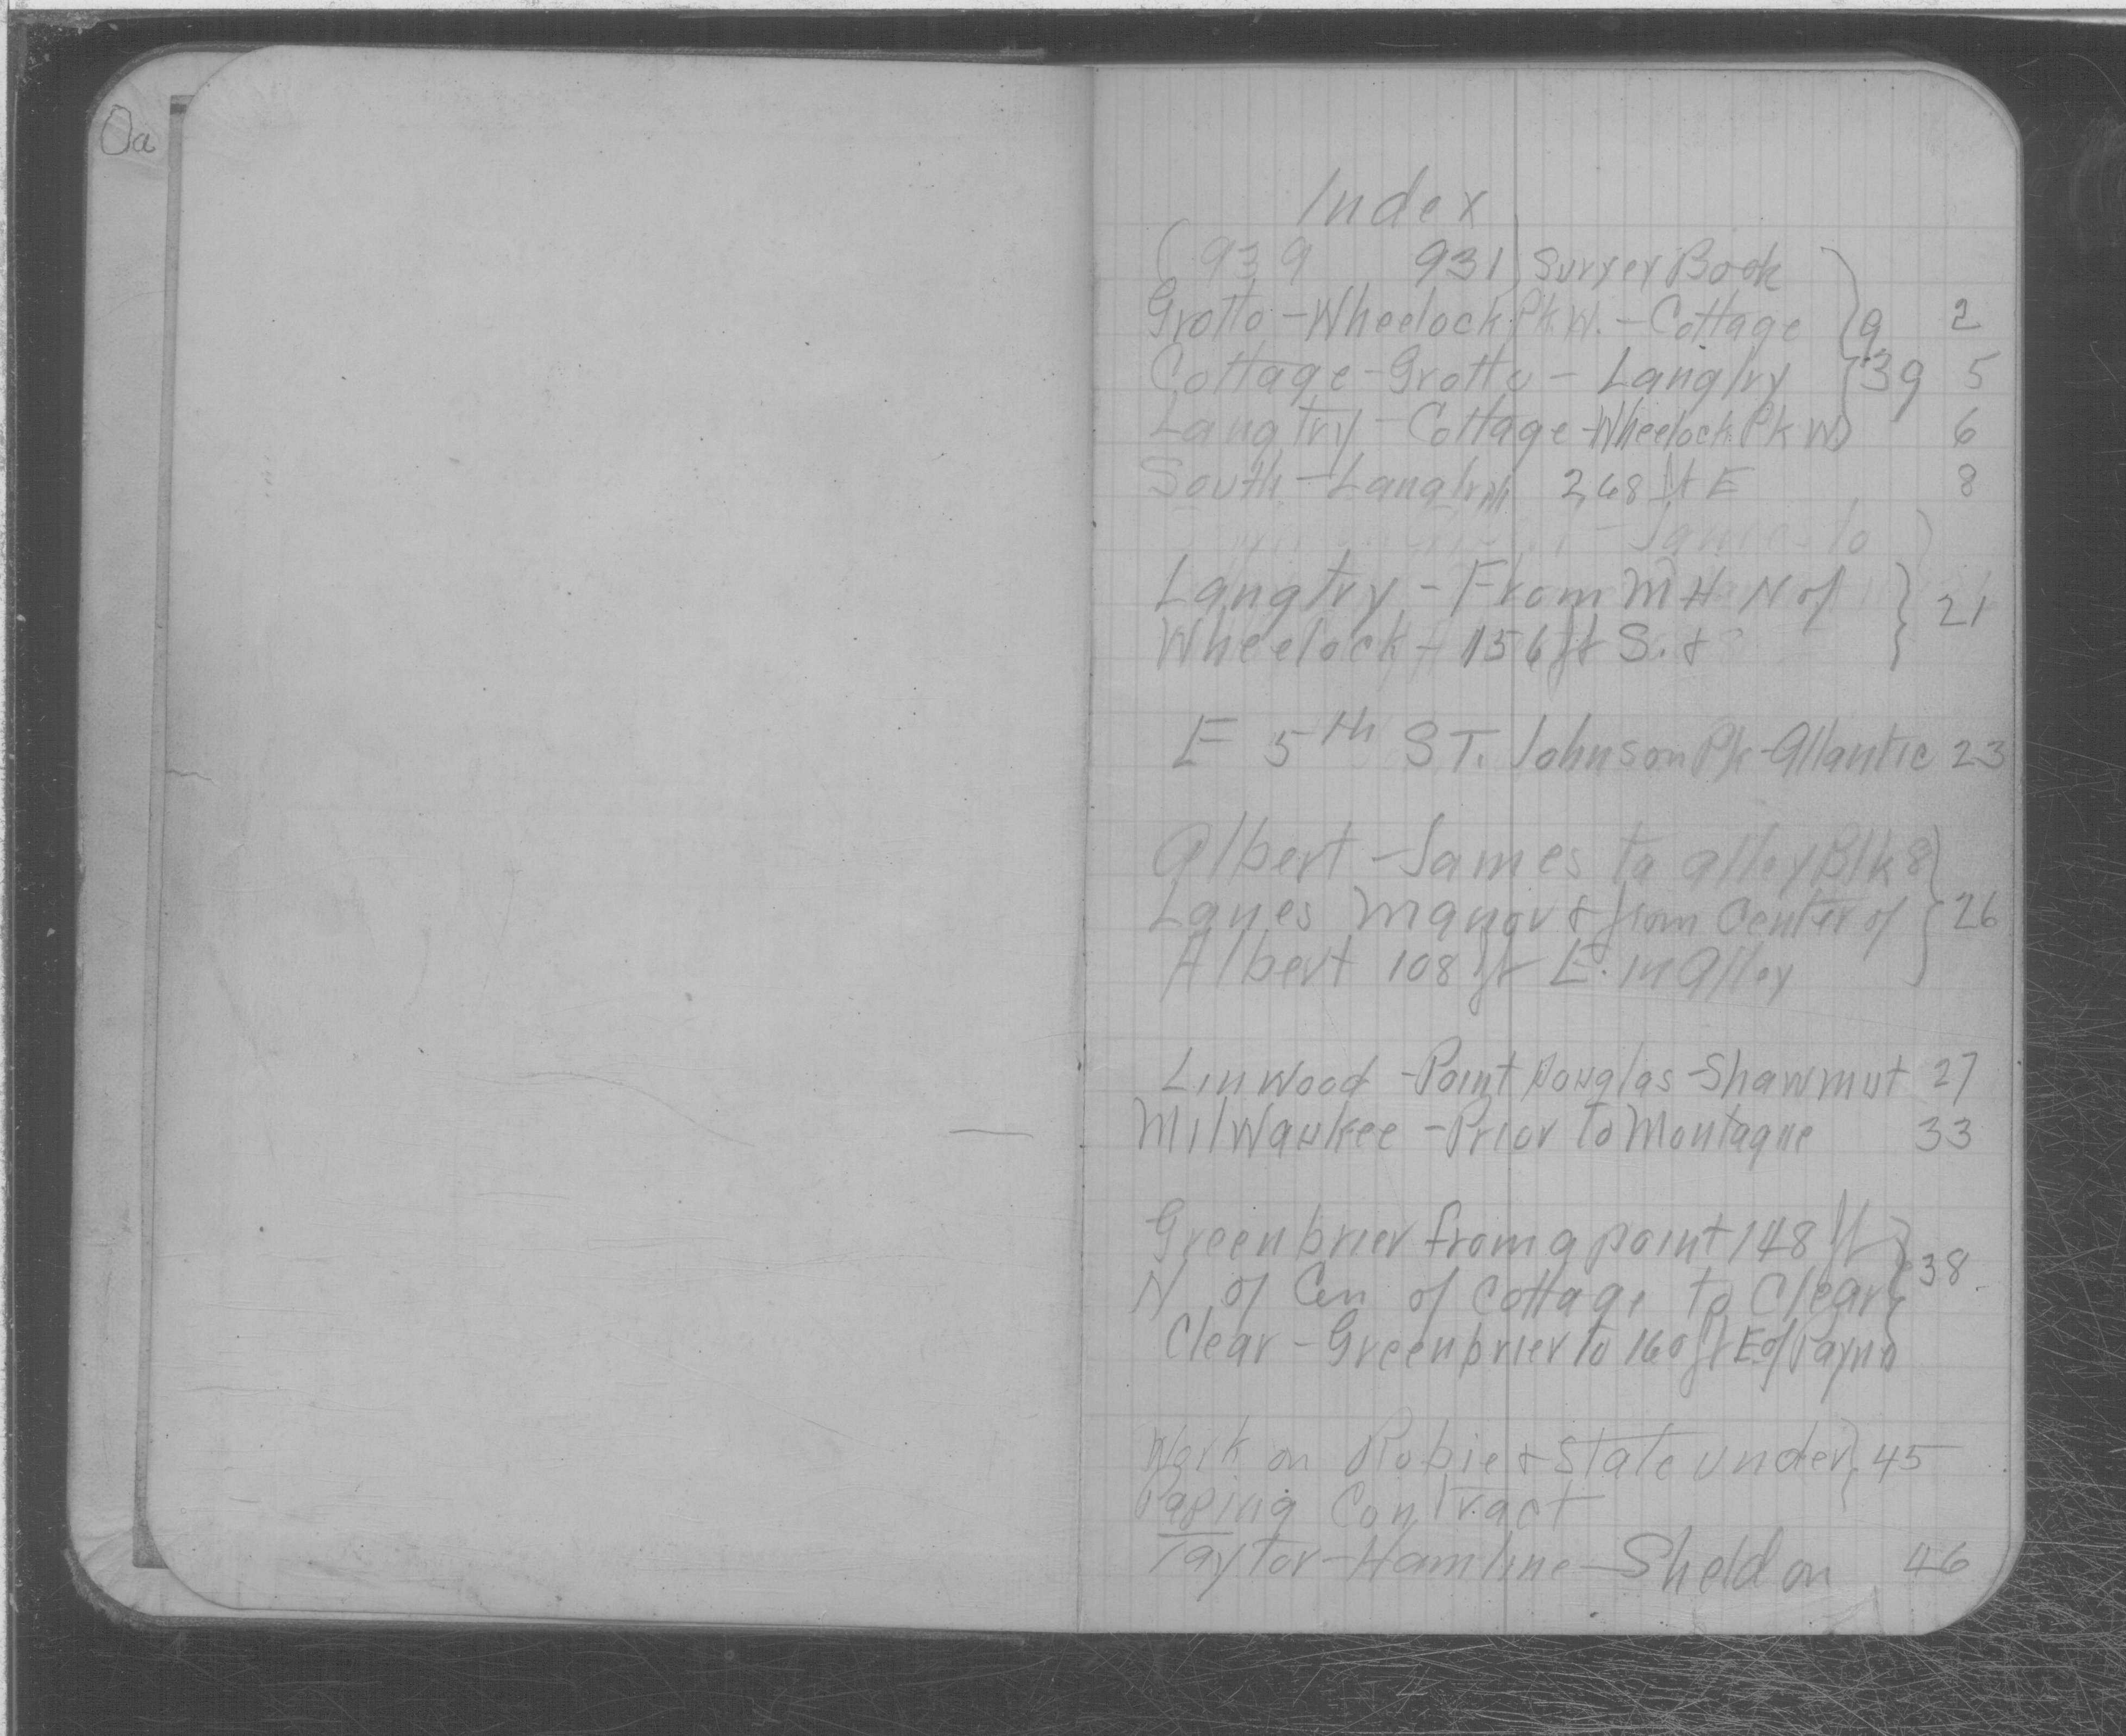 0a
Index
(939 931) Survey Book
Grotto - Wheelock Pkw. - Cottage } 9 2
Cottage - Grotto - Langtry } 39 5
Langtry - Cottage - Wheelock Pk W 6
South - Langtry 268 ft E 8
- James to
Langtry - From MH N of } 21
Wheelock - 156 ft S. &
E 5th ST. Johnson Pk - Atlantic 23
Albert - James to alley Blk 8 }
Lanes Manor & from Center of } 26
Albert 108 ft E. in Alley
Linwood - Point Douglas - Shawmut 27
Milwaukee - Prior to Montague 33
Greenbrier from a point 148 ft }
N of Cen of Cottage to Clear } 38.
Clear - Greenbrier to 160 ft E of Payne
Work on Robie & State under } 45
Paving Contract
Taylor - Hamline - Sheldon 46